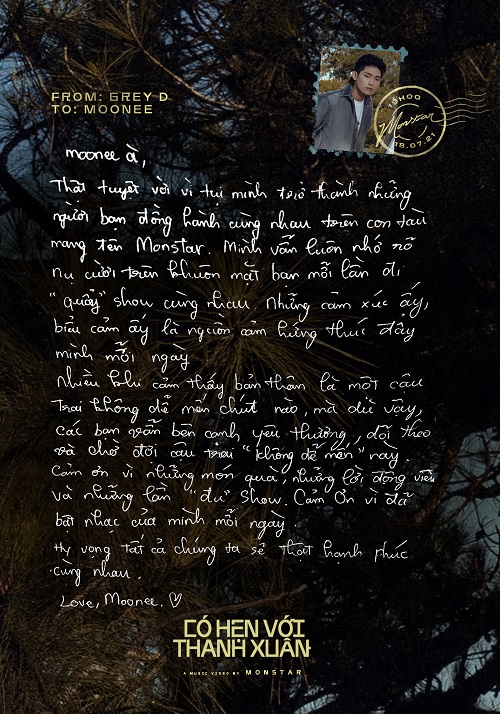 FROM: GREY D
TO: MOONEE
15H00
Monstar
18.07.21
moonee à,
Thật tuyệt vời vì tụi mình trở thành những
người bạn đồng hành cùng nhau trên con tàu
mang tên Monstar. Mình vẫn luôn nhớ rõ
nụ cười trên khuôn mặt bạn mỗi lần đi
"quẩy" show cùng nhau. Những cảm xúc ấy,
biểu cảm ấy là nguồn cảm hứng thúc đẩy
mình mỗi ngày
Nhiều khi cảm thấy bản thân là một cậu
trai không dễ mến chút nào, mà dù vậy,
các bạn vẫn bên cạnh yêu thương, dõi theo
và chờ đợi cậu trai "không dễ mến" này.
Cảm ơn vì những món quà, những lời động viên
và những lần "đu" show. Cảm ơn vì đã
bật nhạc của mình mỗi ngày.
Hy vọng tất cả chúng ta sẽ thật hạnh phúc
cùng nhau.
Love, Moonee. ♡
CÓ HẸN VỚI
THANH XUÂN
A MUSIC VIDEO BY MONSTAR